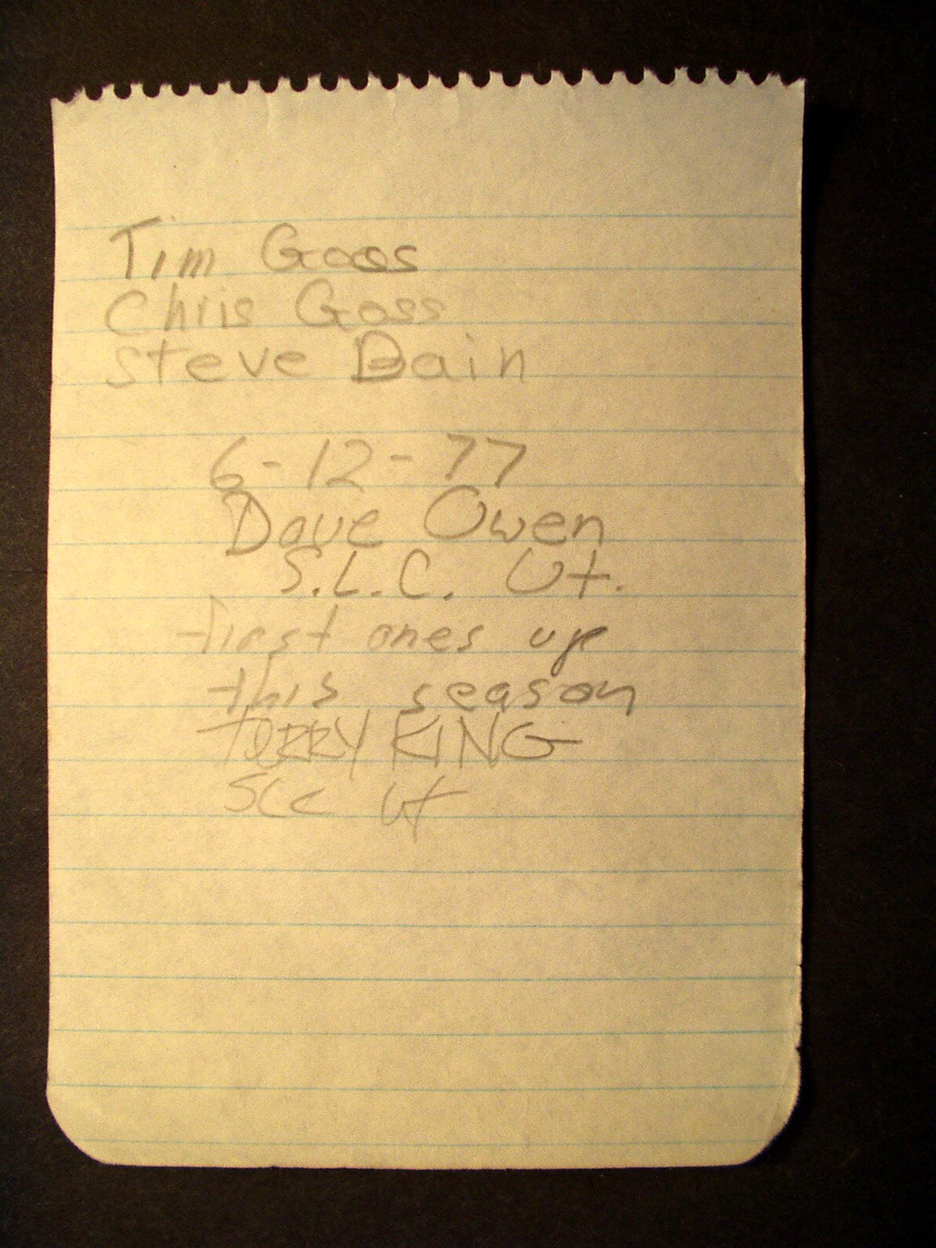 Tim Goss
Chris Goss
Steve Bain
6-12-77
Dave Owen
S.L.C. Ut.
first ones up
this season
TERRY KING
SLC Ut